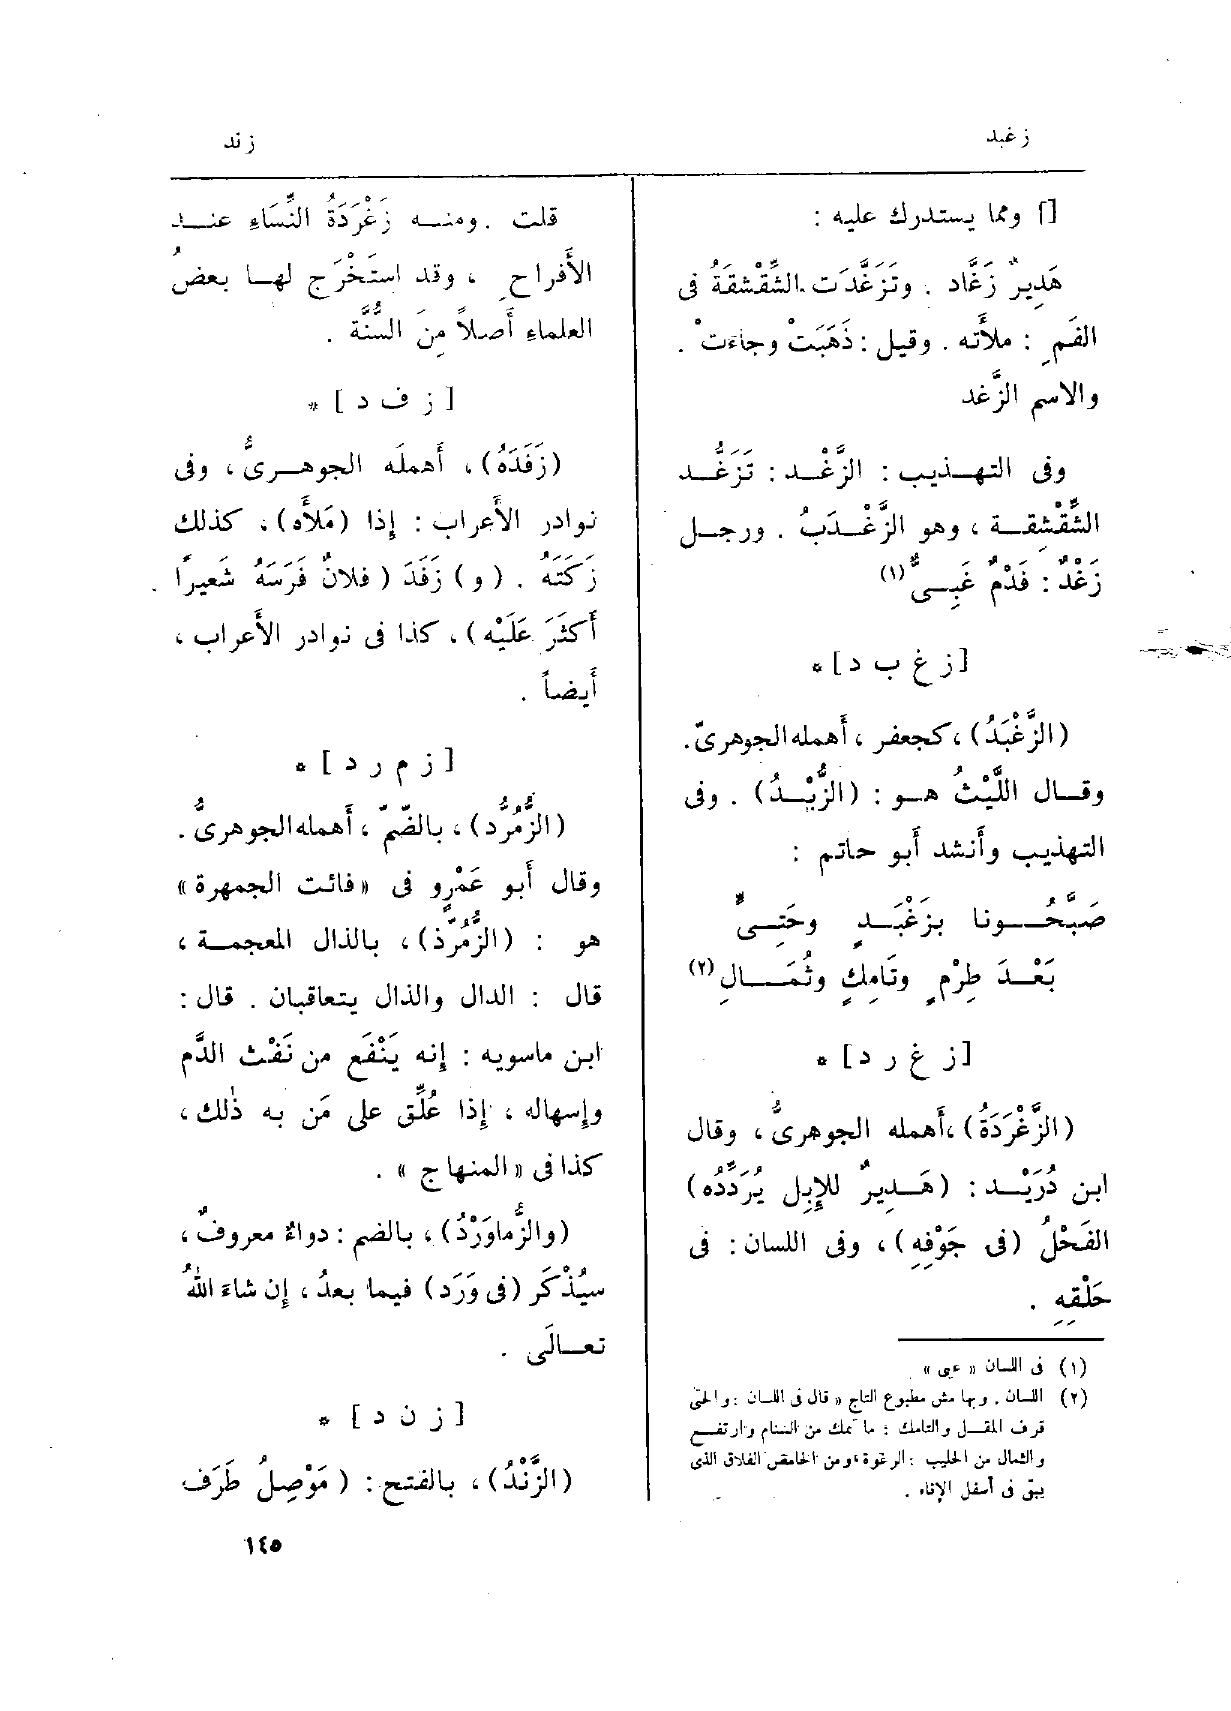 زغبد
زند
[] ومما يستدرك عليه :
هَدِيرٌ زَغَّاد . وتَزَغَّدَت الشِّقْشِقَةُ فى
الفَمِ : ملأَته . وقيل : ذَهَبَتْ وجاءتْ .
والاسم الزَّغْد
وفى التهـذيب : الزَّغْـد : تَزَغُّـد
الشِّقْشِقـة ، وهو الزَّغْـدَبُ . ورجـل
زَغْدٌ : فَدْمٌ غَبِـىٌّ (١)
[ز غ ب د] *
(الزَّغْبَدُ) ، كجعفر ، أَهمله الجوهرىّ.
وقـال اللَّيْثُ هـو : (الزُّبْـدُ) . وفى
التهذيب وأَنشد أَبو حاتم :
صَبَّحُـونا بزَغْبَـدٍ وحَتِـىٍّ
بَعْـدَ طِرْمٍ وتَامِكٍ وثُمَـالِ (٢)
[ز غ ر د] *
(الزَّغْرَدَةُ) ،أَهمله الجوهرىُّ ، وقال
ابن دُرَيْـد : (هَـدِيرٌ للإِبِل يُرَدِّدُه)
الفَحْلُ (فى جَوْفِهِ) ، وفى اللسان : فى
حَلْقِهِ .
(١) فى اللسان « عيى »
(٢) اللسان . وبهامش مطبوع التاج « قال فى اللسان : والحتىّ
قرف المقـل والتامك : ما تمك من السنام وارتفـع
والثمال من الحليب : الرغوة ، ومن الحامض الفلاق الذى
يبقى فى أسفل الإناء .
قلت . ومنـه زَغْرَدَةُ النِّسَاءِ عنـد
الأَفراحِ ، وقد استَخْرَج لهـا بعضُ
العلماءِ أَصـلاً مِنَ السُّنَّة .
[ ز ف د ] *
(زَفَدَهُ) ، أَهملَه الجوهـرىُّ ، وفى
نوادر الأَعراب : إِذا (مَلأَه) ، كذلك
زَكَتَهُ . (و) زَفَدَ (فلانٌ فَرَسَهُ شَعيرًا .
أَكثَرَ عَلَيْه) ، كذا فى نوادر الأَعراب ،
أَيضـاً .
[ ز م ر د ] *
(الزُّمُرُّد) ، بالضّمّ ، أَهمله الجوهرىُّ .
وقال أَبو عَمْرٍو فى « فائت الجمهرة »
هو : (الزُّمُرّذ) ، بالذال المعجمـة ،
قال : الدال والذال يتعاقبان . قال :
ابن ماسويه : إِنه يَنْفَع من نَفْث الدَّم
وإِسهاله ، إِذا عُلِّق على مَن به ذٰلك ،
كذا فى « المنهاج » .
(والزُّماوَرْدُ) ، بالضم : دواءٌ معروفٌ ،
سيُذْكَر (فى وَرَد) فيما بعدُ ، إِن شاءَ اللهُ
تعـالَى .
[ ز ن د ] *
(الزَّنْدُ) ، بالفتح : ( مَوْصِلُ طَرَف
١٤٥